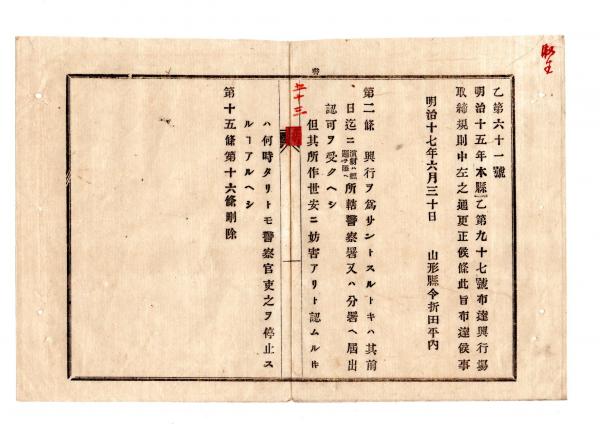 乙第六十一號
明治十五年本縣乙第九十七號布達興行場
取締規則中左之通更正候條此旨布達候事
明治十七年六月三十日　山形縣令折田平內
第二條　興行ヲ爲サントスルトキハ其前
日迄ニ所轄警察署又ハ分署ヘ届出
認可ヲ受クヘシ
但其所作世安ニ妨害アリト認ムルキ
五十三
ハ何時タリトモ警察官吏之ヲ停止ス
ルヿアルヘシ
第十五條第十六條刪除